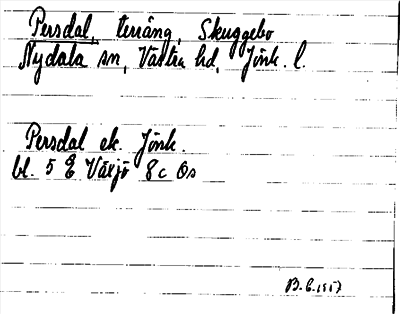 Persdal, terräng, Skuggebo
Nydala sn, Västra hd, Jönk. l.
Persdal ek. Jönk.
bl. 5 E Växjö 8c Ös
B.E. 1957